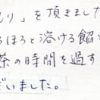 り」を頂きました
ほろほろと溶ける餡
祭の時間を過す
ございました。